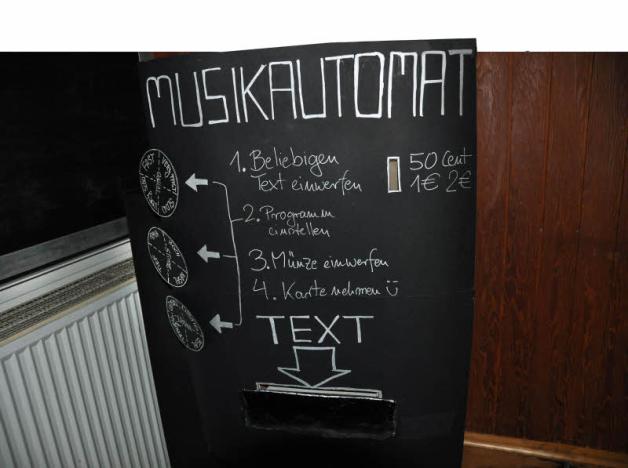 MUSIKAUTOMAT
1. Beliebigen
Text einwerfen
50 Cent
1€ 2€
2. Programm
einstellen
3. Münze einwerfen
4. Karte nehmen ü
TEXT
FAST